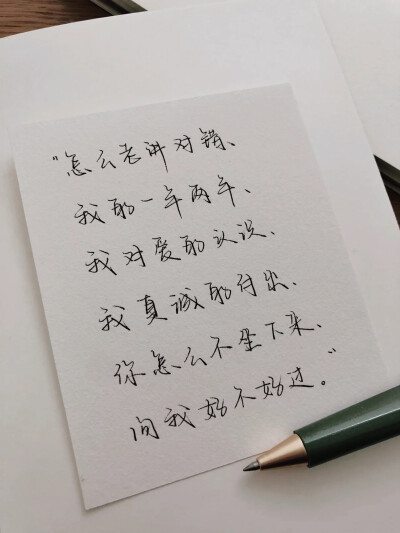 “怎么老讲对错、
我的一年两年、
我对爱的认识、
我真诚的付出、
你怎么不坐下来、
问我好不好过。”